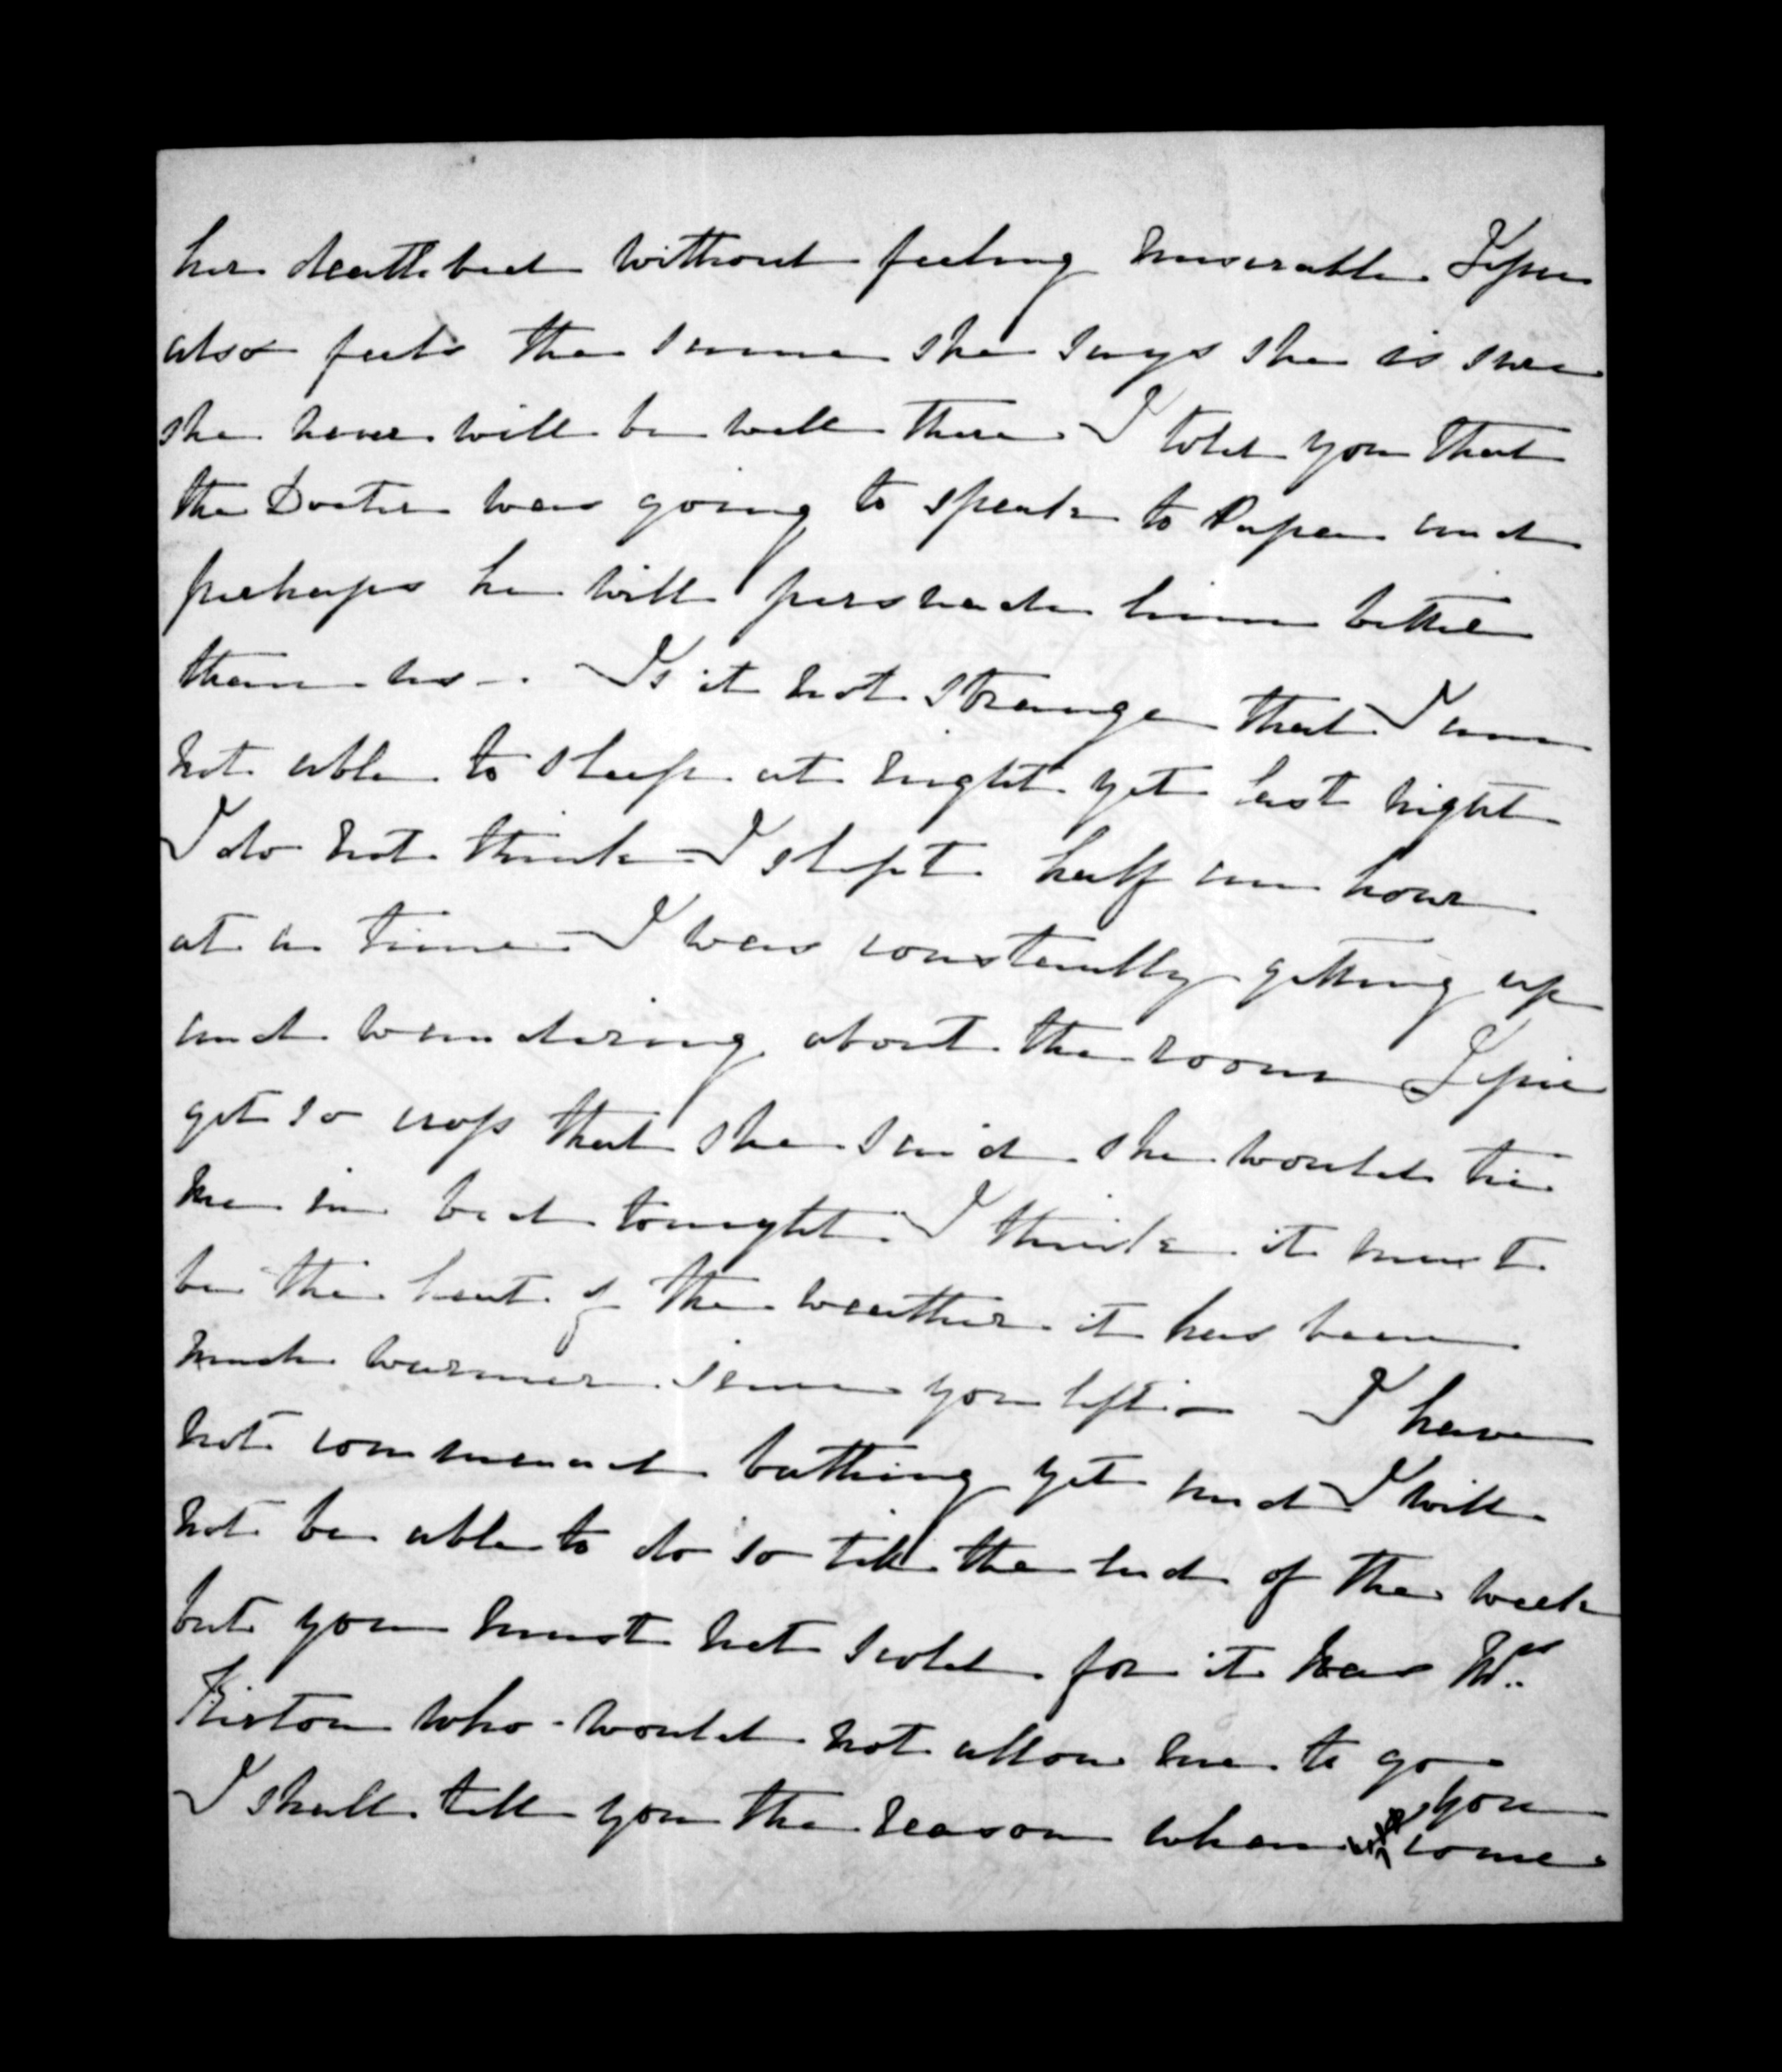 her deathbed without feeling miserable
also feels the same she says she is sure
she never will be well there I told you that
the Doctor was going to speak to Papa and
perhaps he will persuade him better
than us -. Is it not strange that I am
not able to sleep at night yet last night
I do not think I slept half an hour
at a time I was constantly getting up
and wandering about the room
got so cross that she said she would tie
me in bed tonight. I think it must
be the heat of the weather it has been
much warmer since you left. - I have
not commenced bathing yet and I will
not be able to do so till the end of the week
but you must not scold for it was Mrs
Kirton who would not allow me to go
I shall tell you the reason when you come